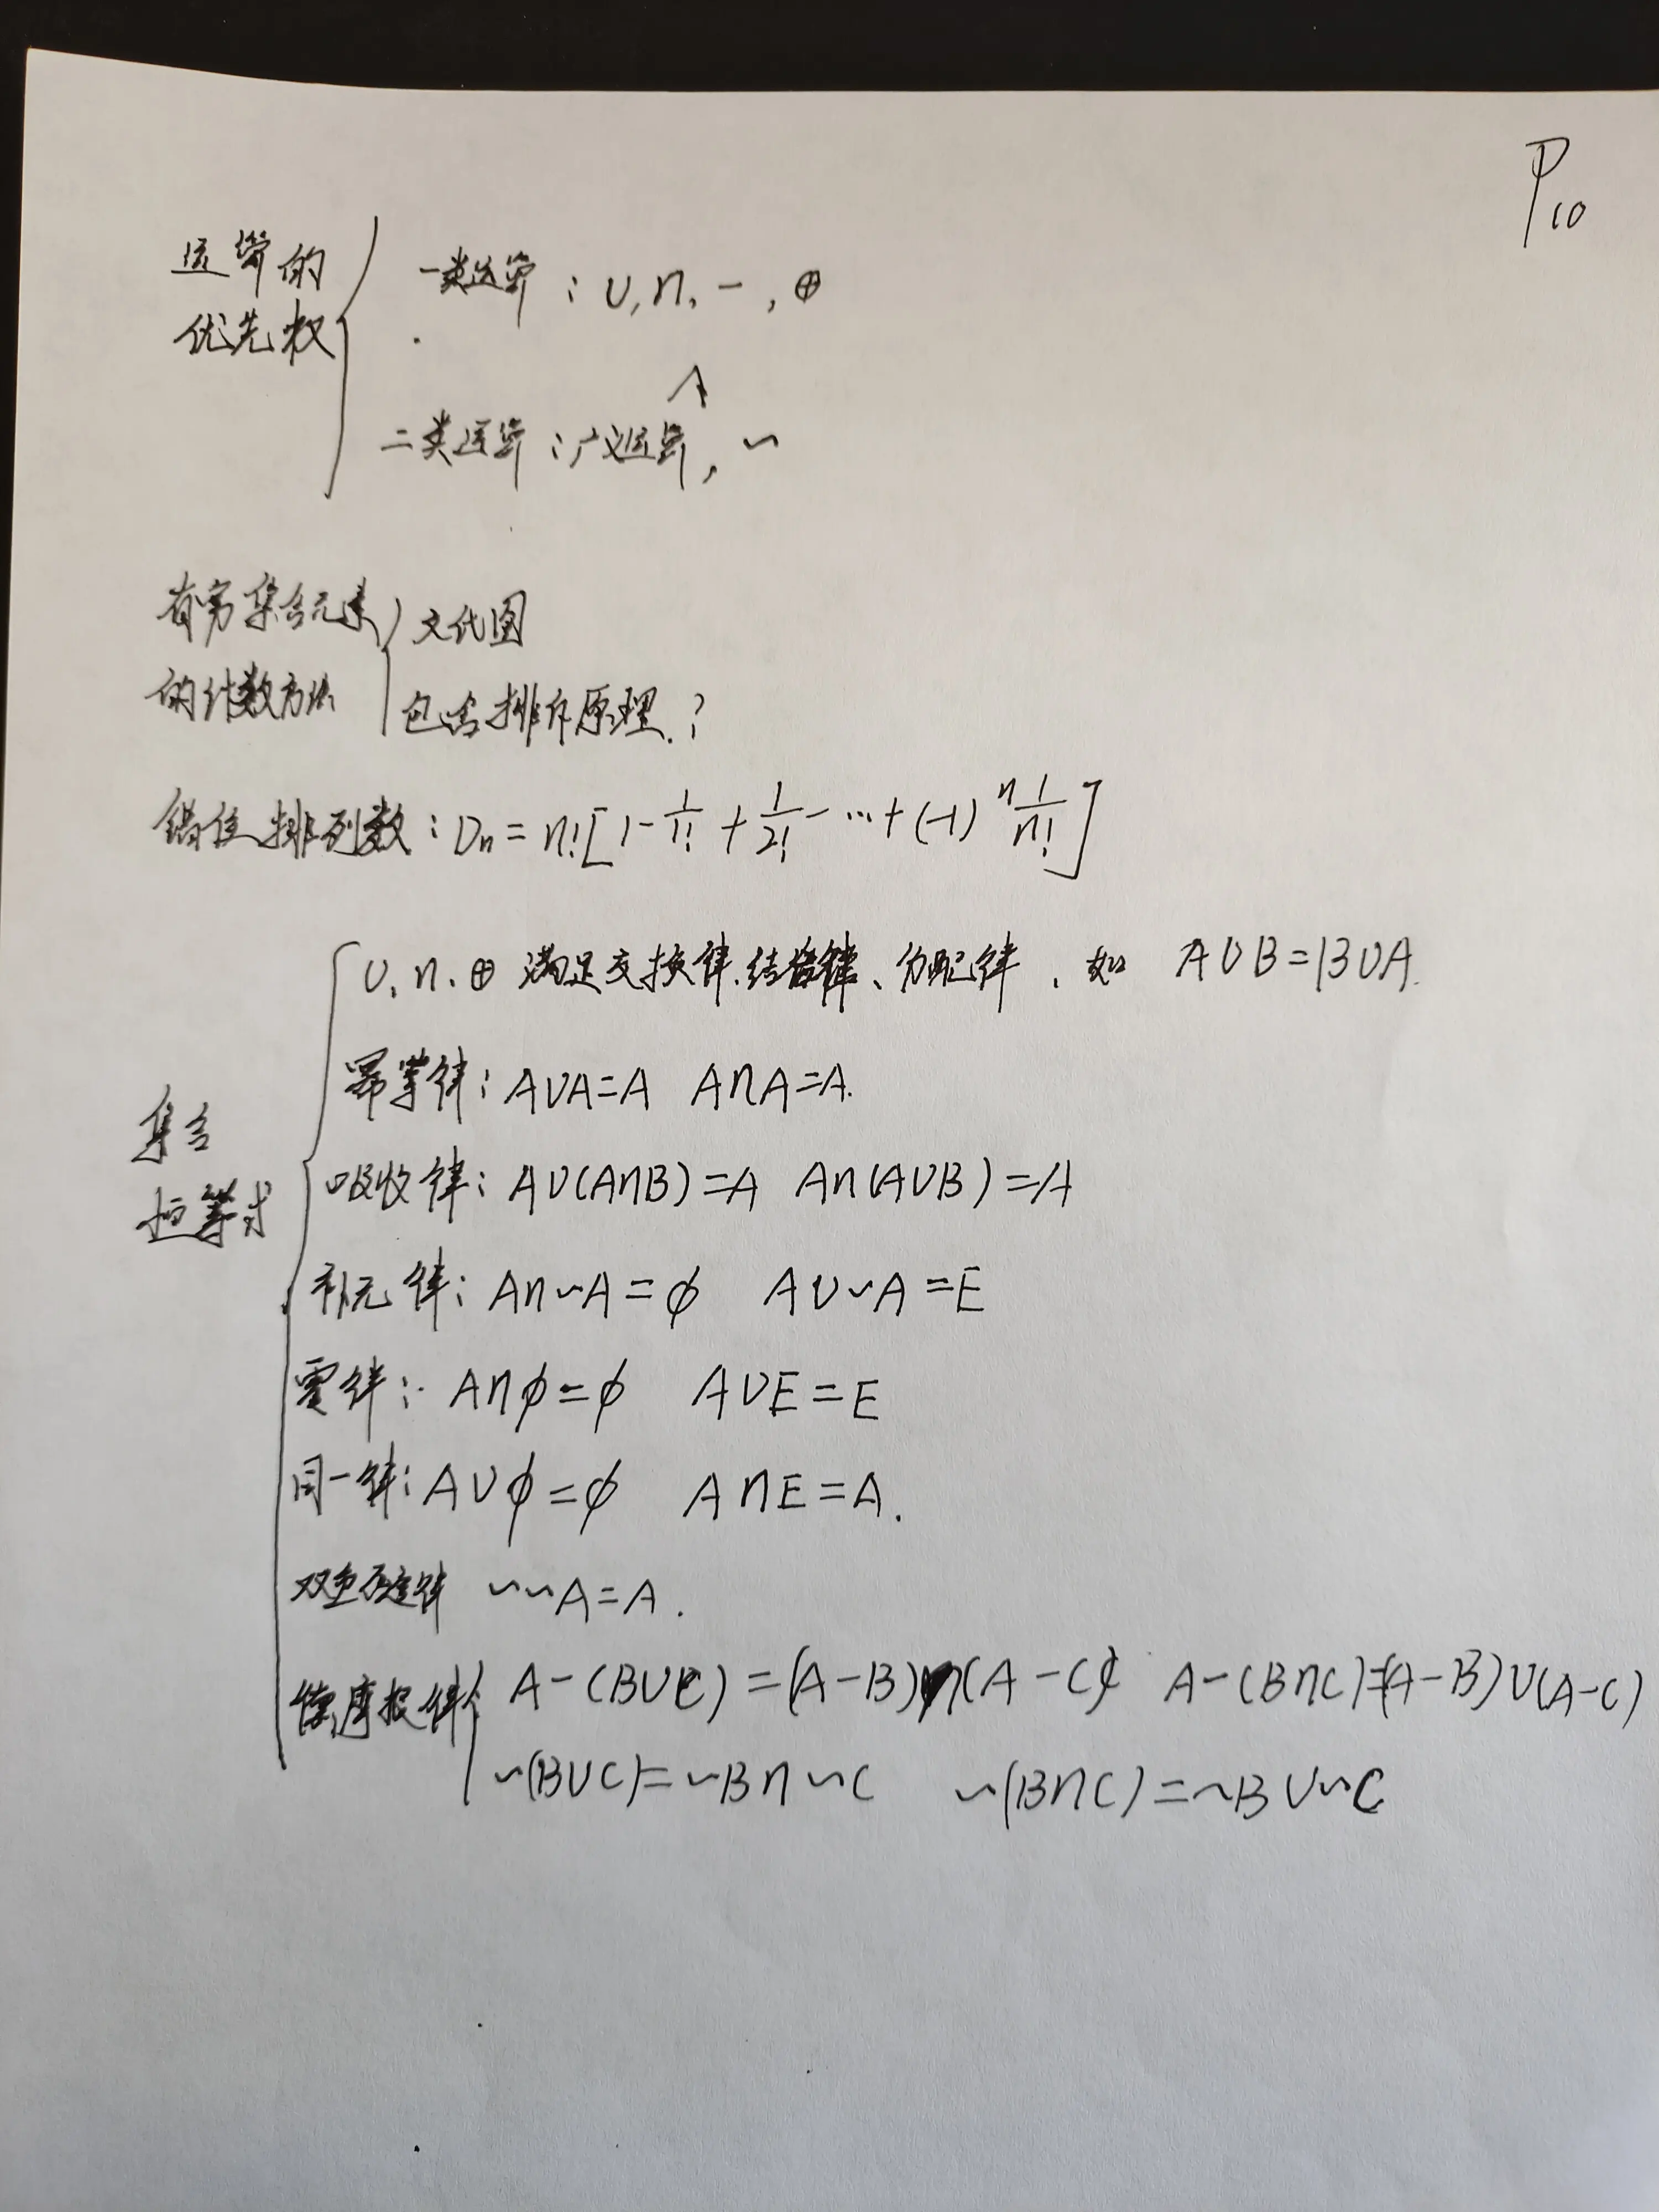 P10
运算的
优先权
一类运算：∪,∩,-,⊕
二类运算：广义运算,~
有穷集合元素
的计数方法
文氏图
包含排斥原理.?
错位排列数：Dn=n![1-1/1!+1/2!-…+(-1)^n 1/n!]
∪,∩,⊕ 满足交换律、结合律、分配律，如 A∪B=B∪A.
集合
恒等式
幂等律：A∪A=A A∩A=A.
吸收律：A∪(A∩B)=A A∩(A∪B)=A
补元律：A∩~A=∅ A∪~A=E
零律：A∩∅=∅ A∪E=E
同一律：A∪∅=∅ A∩E=A.
双重否定律 ~~A=A.
德摩根律 A-(B∪C)=(A-B)∩(A-C) A-(B∩C)=(A-B)∪(A-C)
~(B∪C)=~B∩~C ~(B∩C)=~B∪~C